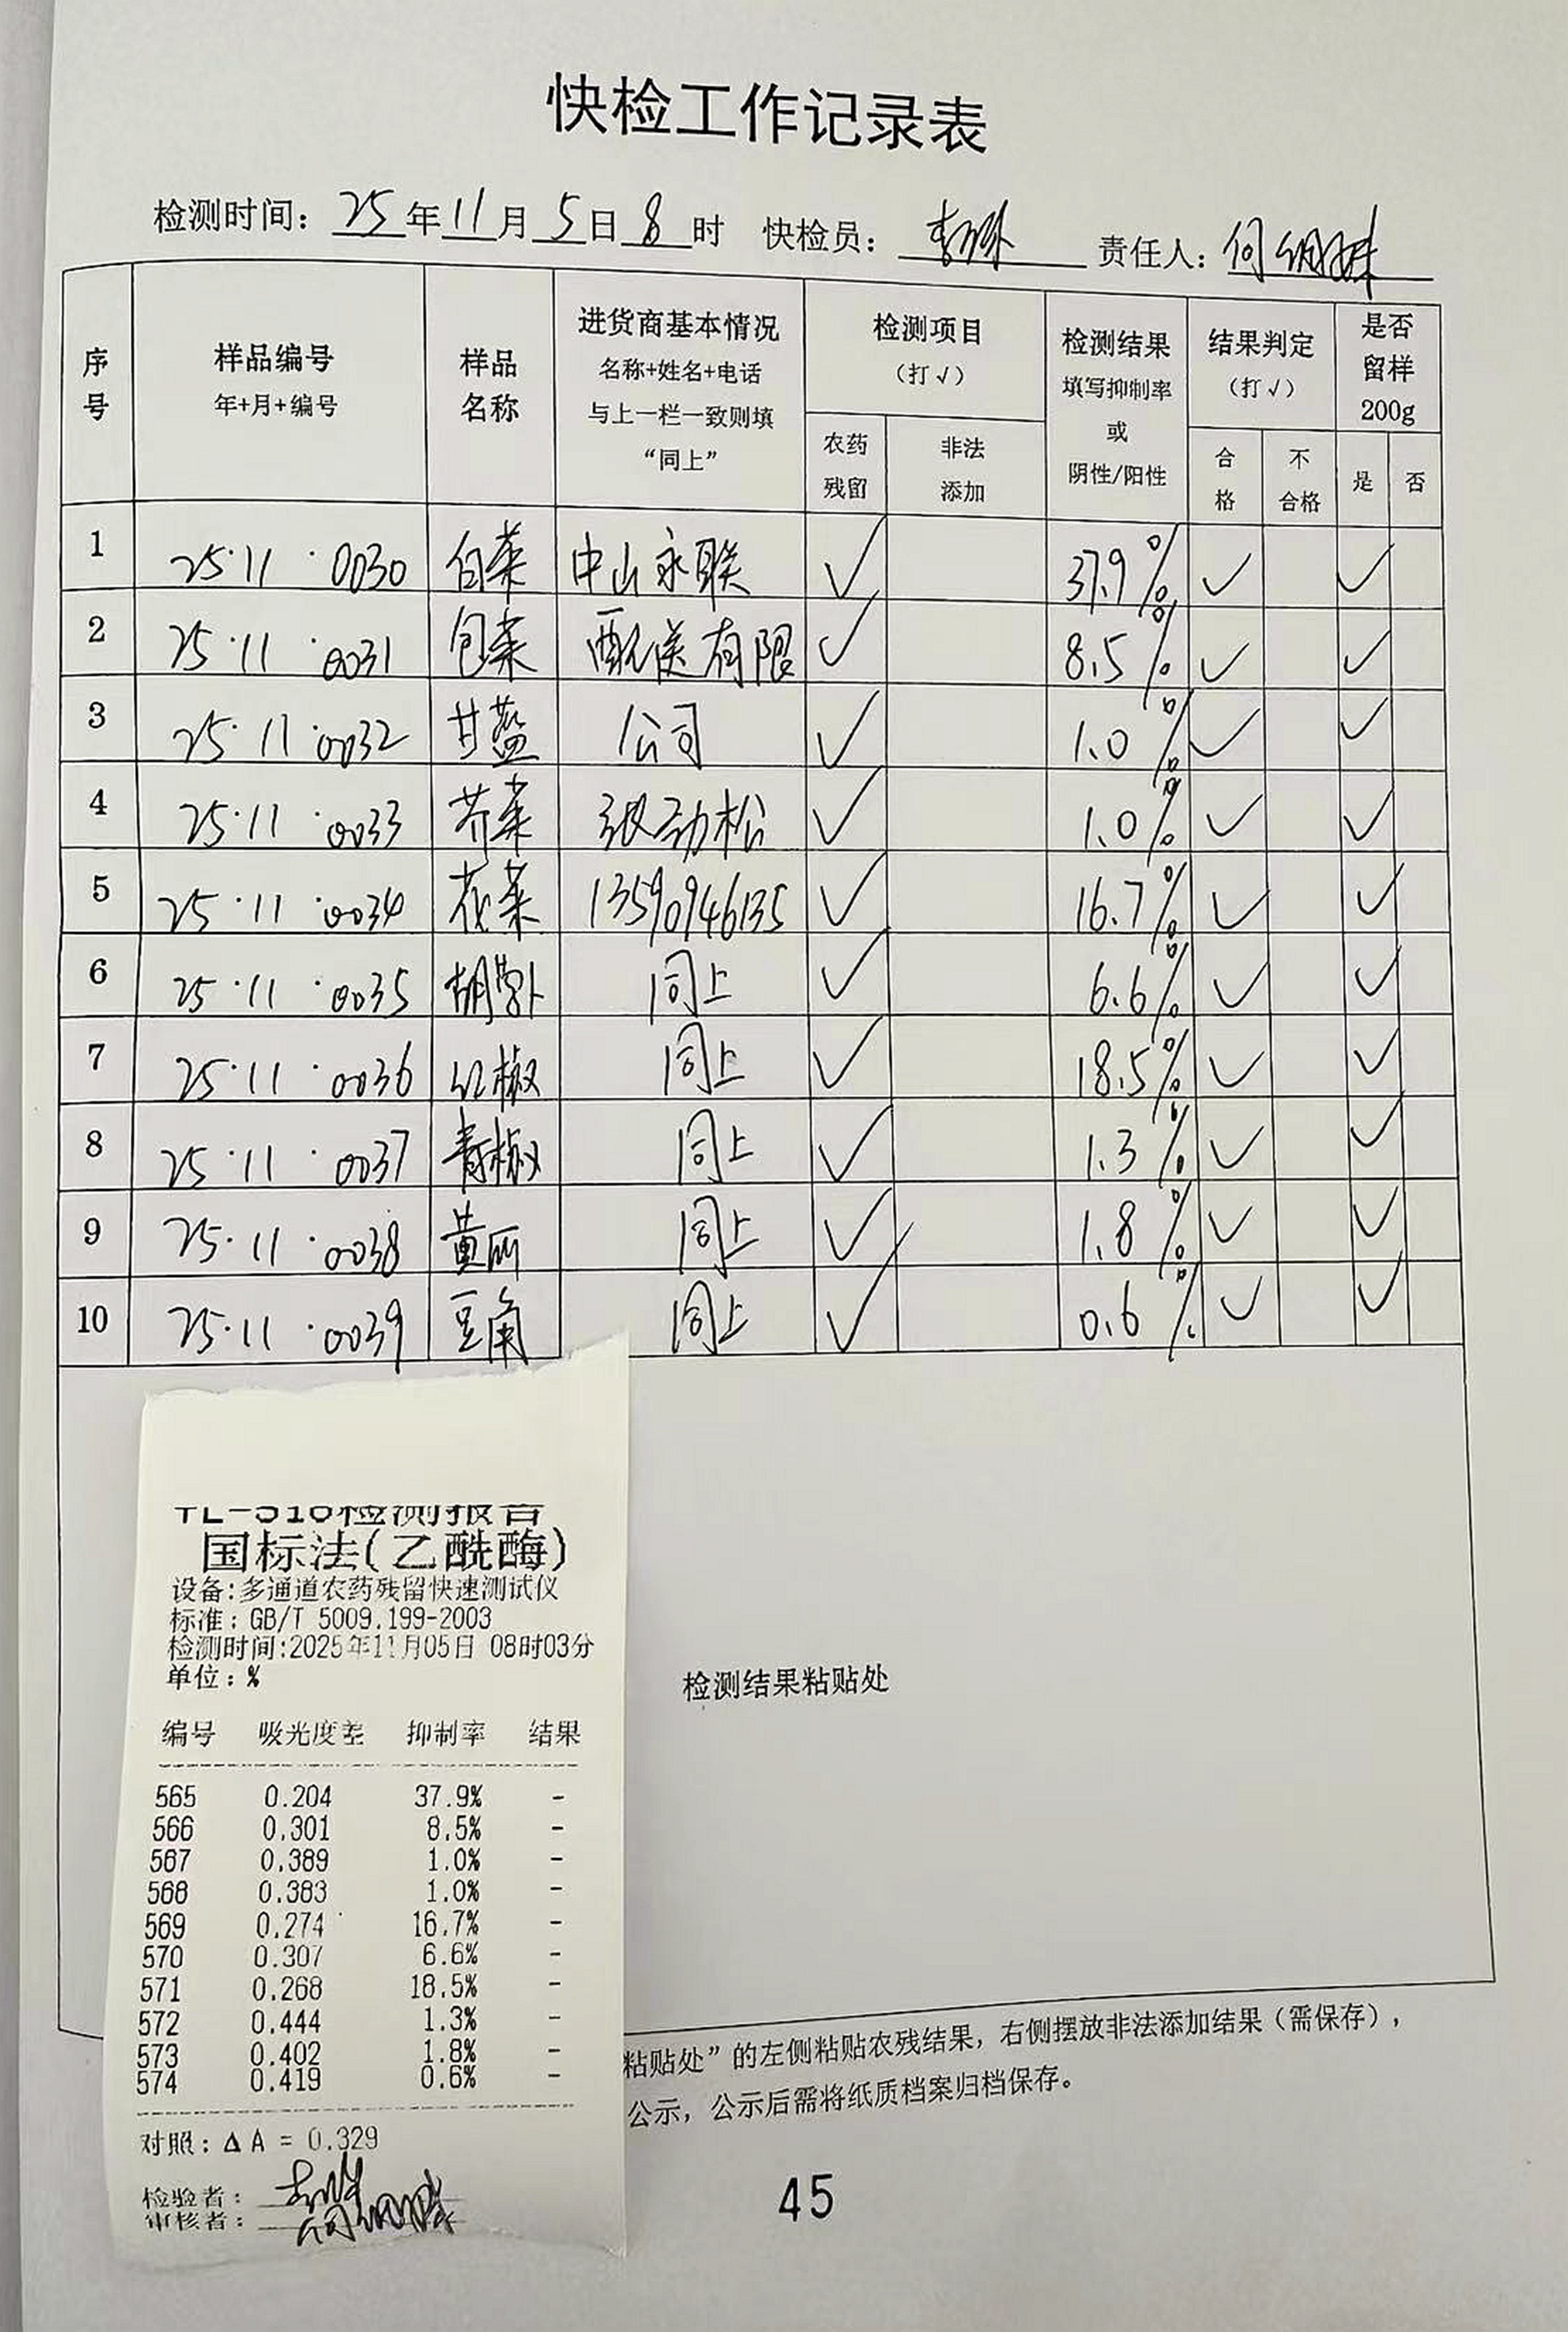 快检工作记录表
检测时间: 25年11月5日8时 快检员: 责任人: 何
序号 样品编号 年+月+编号 样品名称 进货商基本情况 名称+姓名+电话 与上一栏一致则填 “同上” 检测项目 (打√) 农药残留 非法添加 检测结果 填写抑制率 或 阴性/阳性 结果判定 (打√) 合格 不合格 是否留样200g 是 否
1 25·11·0030 白菜 中山永联 √ 37.9% √ √
2 25·11·0031 包菜 配送有限 √ 8.5% √ √
3 25·11·0032 甘蓝 公司 √ 1.0% √ √
4 25·11·0033 芥菜 张劲松 √ 1.0% √ √
5 25·11·0034 花菜 13590946135 √ 16.7% √ √
6 25·11·0035 胡萝卜 同上 √ 6.6% √ √
7 25·11·0036 红椒 同上 √ 18.5% √ √
8 25·11·0037 青椒 同上 √ 1.3% √ √
9 25·11·0038 黄瓜 同上 √ 1.8% √ √
10 25·11·0039 豆角 同上 √ 0.6% √ √
检测结果粘贴处
TL-310检测报告
国标法(乙酰酶)
设备:多通道农药残留快速测试仪
标准: GB/T 5009.199-2003
检测时间:2025年11月05日 08时03分
单位: %
编号 吸光度差 抑制率 结果
565 0.204 37.9% -
566 0.301 8.5% -
567 0.389 1.0% -
568 0.383 1.0% -
569 0.274 16.7% -
570 0.307 6.6% -
571 0.268 18.5% -
572 0.444 1.3% -
573 0.402 1.8% -
574 0.419 0.6% -
对照: ΔA = 0.329
检验者:
审核者: 何
粘贴处”的左侧粘贴农残结果，右侧摆放非法添加结果（需保存），
公示，公示后需将纸质档案归档保存。
45